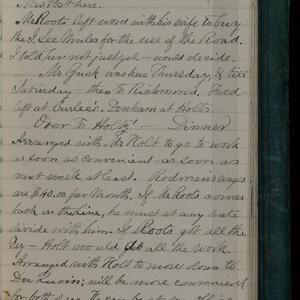 Mrs. Pott here.
Mr Roots left word with his wife to buy
the I. Lee Mules for the use of the Road.
I told her not just yet — would decide.
Mr Gusk was here Thursday, & till
Saturday — then to Richmond. Fred
left at Curlee's. Denham at Holts.
Over to Holts' — Dinner
Arranged with Mr Holt to go to work
as soon as convenient — as soon as
next week at least. Rodman's wages
are $40.00 per Month. If Mr Roots comes
back on the Line, he must at any rate
divide with him. If Roots got all the
Pay — Holt would do all the work.
Arranged with Holt to move down to
will be more convenient
for both